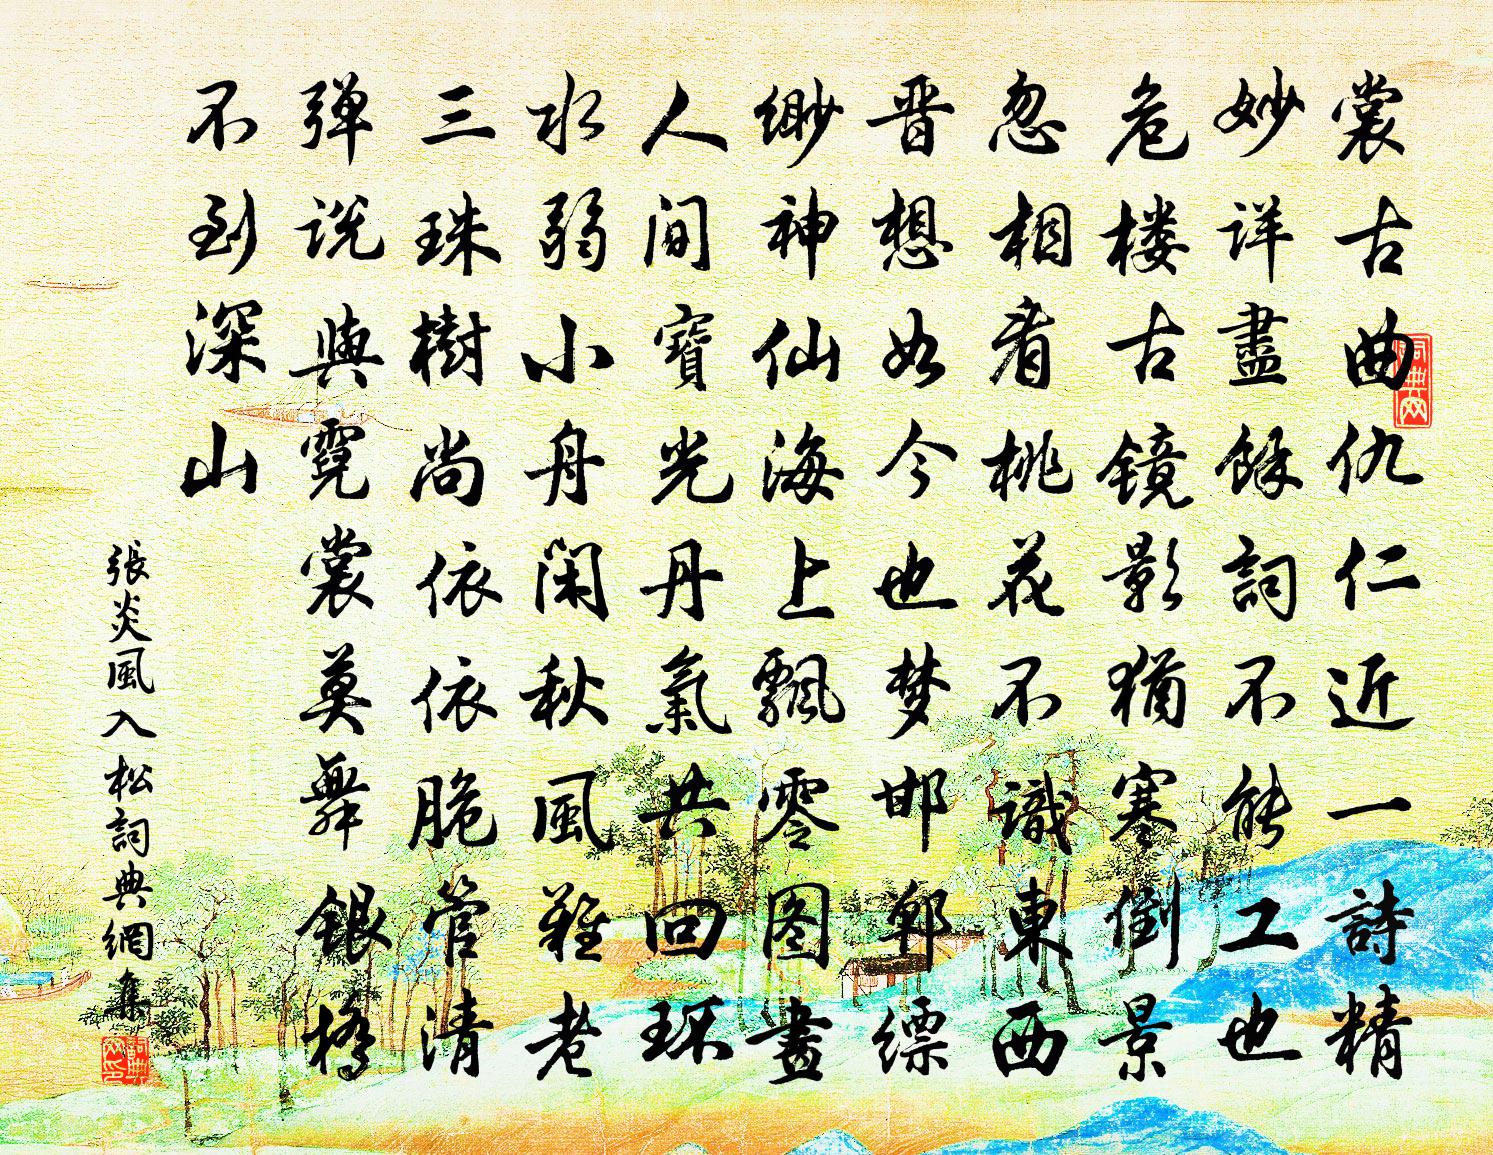 裳古曲仇仁近一詩精
妙详盡餘詞不能工也
危楼古镜影猶寒倒景
忽相看桃花不識東西
晋想如今也梦邯鄲缥
缈神仙海上飄零图畫
人间寶光丹氣共回环
水弱小舟闲秋風難老
三珠樹尚依依脆管清
弹说與霓裳莫舞銀橋
不到深山
張炎風入松詞典網集
词典网